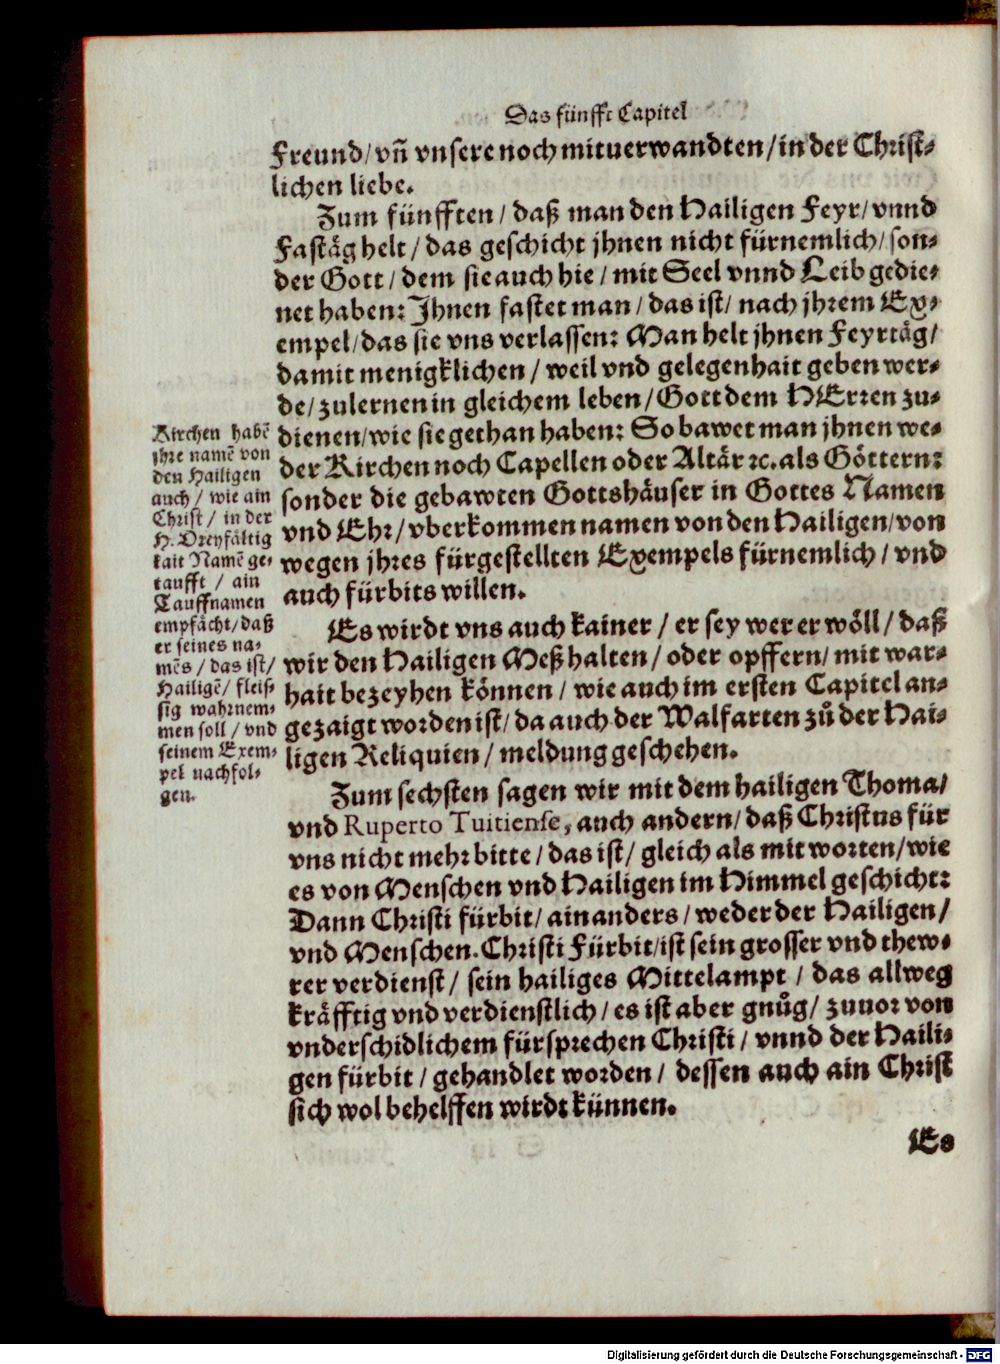 Das fünfft Capitel
Freund/ vñ vnsere noch mituerwandten/ in der Christ-
lichen liebe.
Zum fünfften/ daß man den Hailigen Feyr/ vnnd
Fastäg helt/ das geschicht jhnen nicht fürnemlich/ son-
der Gott/ dem sie auch hie/ mit Seel vnnd Leib gedie-
net haben: Jhnen fastet man/ das ist/ nach jhrem Ex-
empel/ das sie vns verlassen: Man helt jhnen Feyrtäg/
damit menigklichen/ weil vnd gelegenhait geben wer-
de/ zulernen in gleichem leben/ Gott dem HErren zu-
dienen/ wie sie gethan haben: So bawet man jhnen we-
der Kirchen noch Capellen oder Altär ꝛc. als Göttern:
sonder die gebawten Gottshäuser in Gottes Namen
vnd Ehr/ vberkommen namen von den Hailigen/ von
wegen jhres fürgestellten Exempels fürnemlich/ vnd
auch fürbits willen.
Kirchen habē
jhre namē von
den Hailigen
auch/ wie ain
Christ/ in der
H. Dreyfältig
kait Namē ge-
taufft/ ain
Tauffnamen
empfächt/ daß
er seines na-
mēs/ das ist/
Hailigē/ fleis-
sig wahrnem-
men soll/ vnd
seinem Exem-
pel nachfol-
gen.
Es wirdt vns auch kainer/ er sey wer er wöll/ daß
wir den Hailigen Meß halten/ oder opffern/ mit war-
hait bezeyhen können/ wie auch im ersten Capitel an-
gezaigt worden ist/ da auch der Walfarten zů der Hai-
ligen Reliquien/ meldung geschehen.
Zum sechsten sagen wir mit dem hailigen Thoma/
vnd Ruperto Tuitiense, auch andern/ daß Christus für
vns nicht mehr bitte/ das ist/ gleich als mit worten/ wie
es von Menschen vnd Hailigen im Himmel geschicht:
Dann Christi fürbit/ ain anders/ weder der Hailigen/
vnd Menschen. Christi Fürbit/ ist sein grosser vnd thew-
rer verdienst/ sein hailiges Mittelampt/ das allweg
kräfftig vnd verdienstlich/ es ist aber gnůg/ zuuor von
vnderschidlichem fürsprechen Christi/ vnnd der Haili-
gen fürbit/ gehandlet worden/ dessen auch ain Christ
sich wol behelffen wirdt künnen.
Es
Digitalisierung gefördert durch die Deutsche Forschungsgemeinschaft - DFG